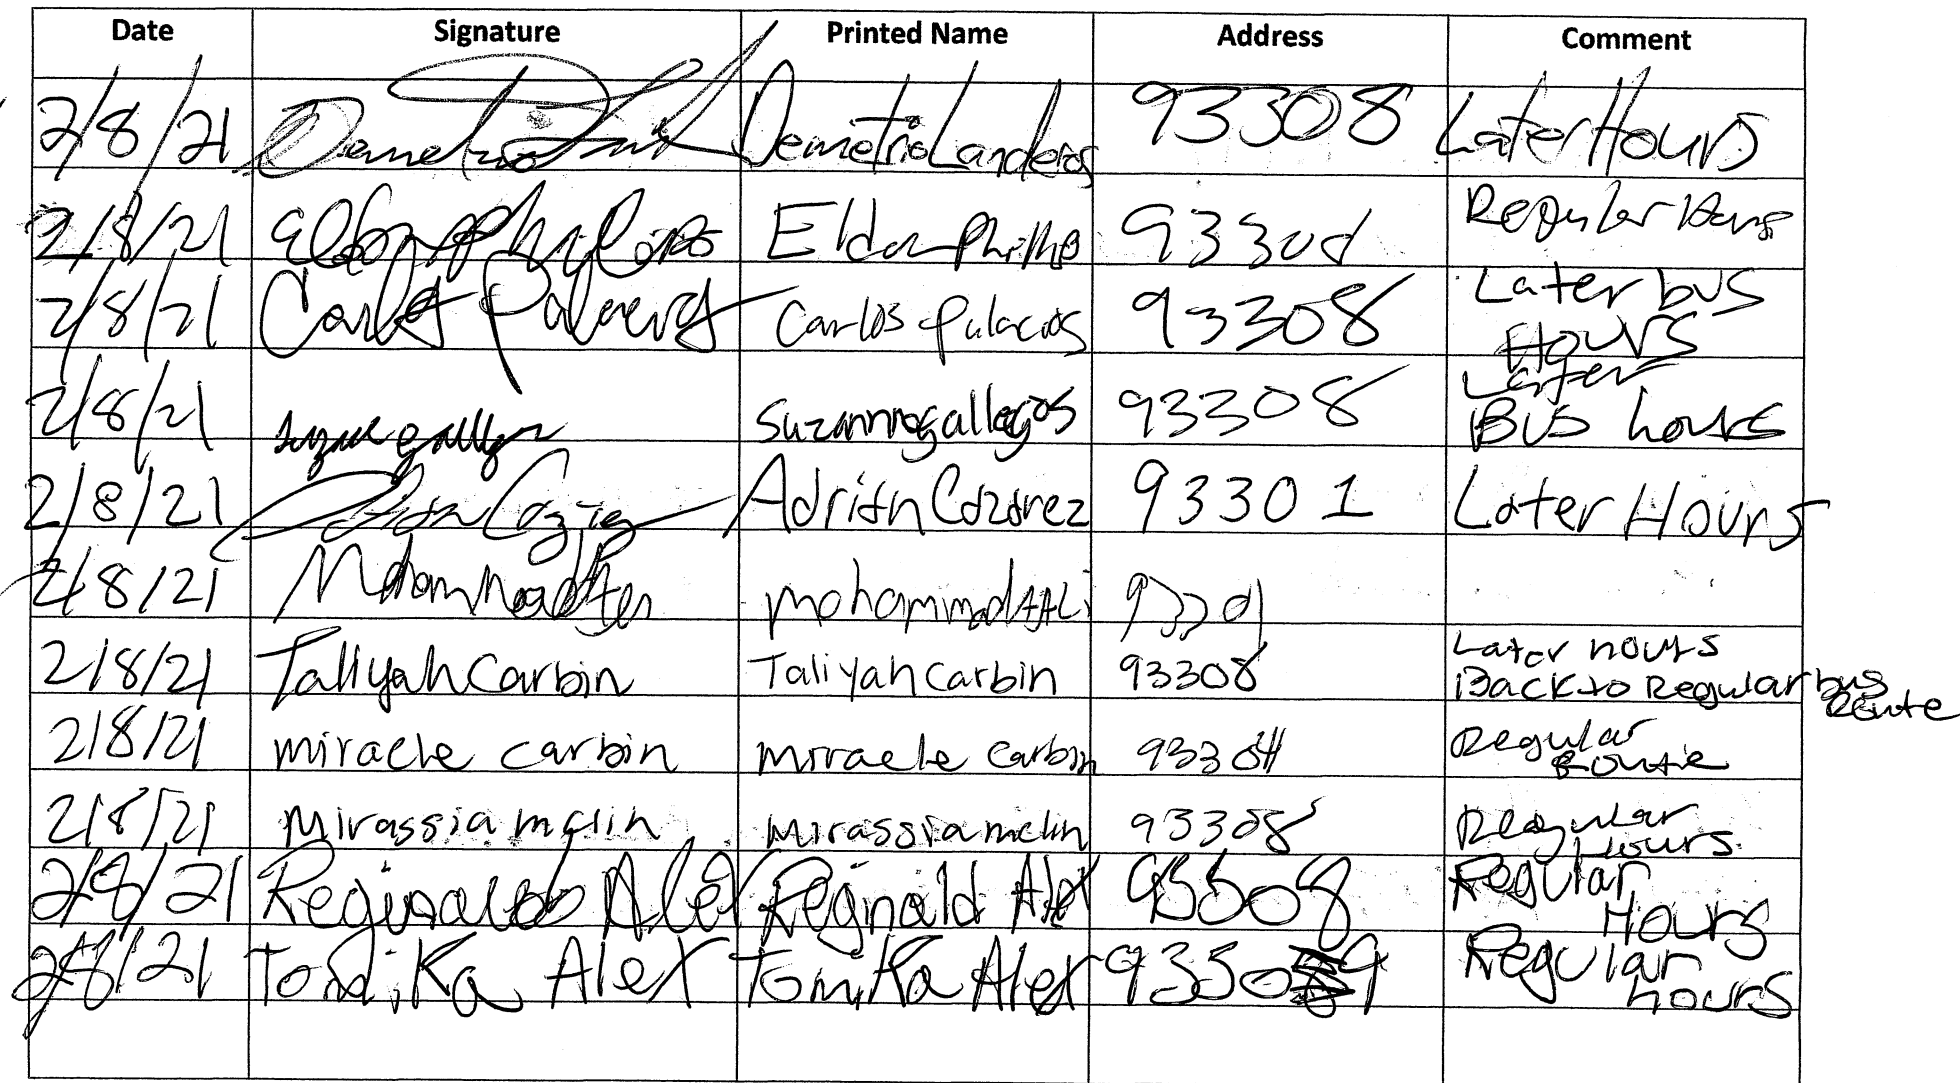 Date Signature Printed Name Address Comment
2/8/21 Demetrio Demetrio Landeros 93308 Later Hours
2/8/21 Eldon 93301 Regular
2/8/21 Carlos Palacios Carlos Palacios 93308 Later bus
Hours
2/8/21 gallegos 93308 Later
Bus hours
2/8/21 Adrian Cazarez 93301 Later Hours
2/8/21 Mohammad
2/8/21 Taliyah Carbin Taliyah Carbin 93308 Later hours
Back to Regular bus
Route
2/8/21 miracle carbin miracle carbin 93304 Regular
Route
2/8/21 Mirassia mclin Mirassia mclin 93308 Regular
Hours
2/8/21 Alex Reginald Alex 93308 Regular
Hours
2/8/21 Tomika Alex Tomika Alex Regular
hours